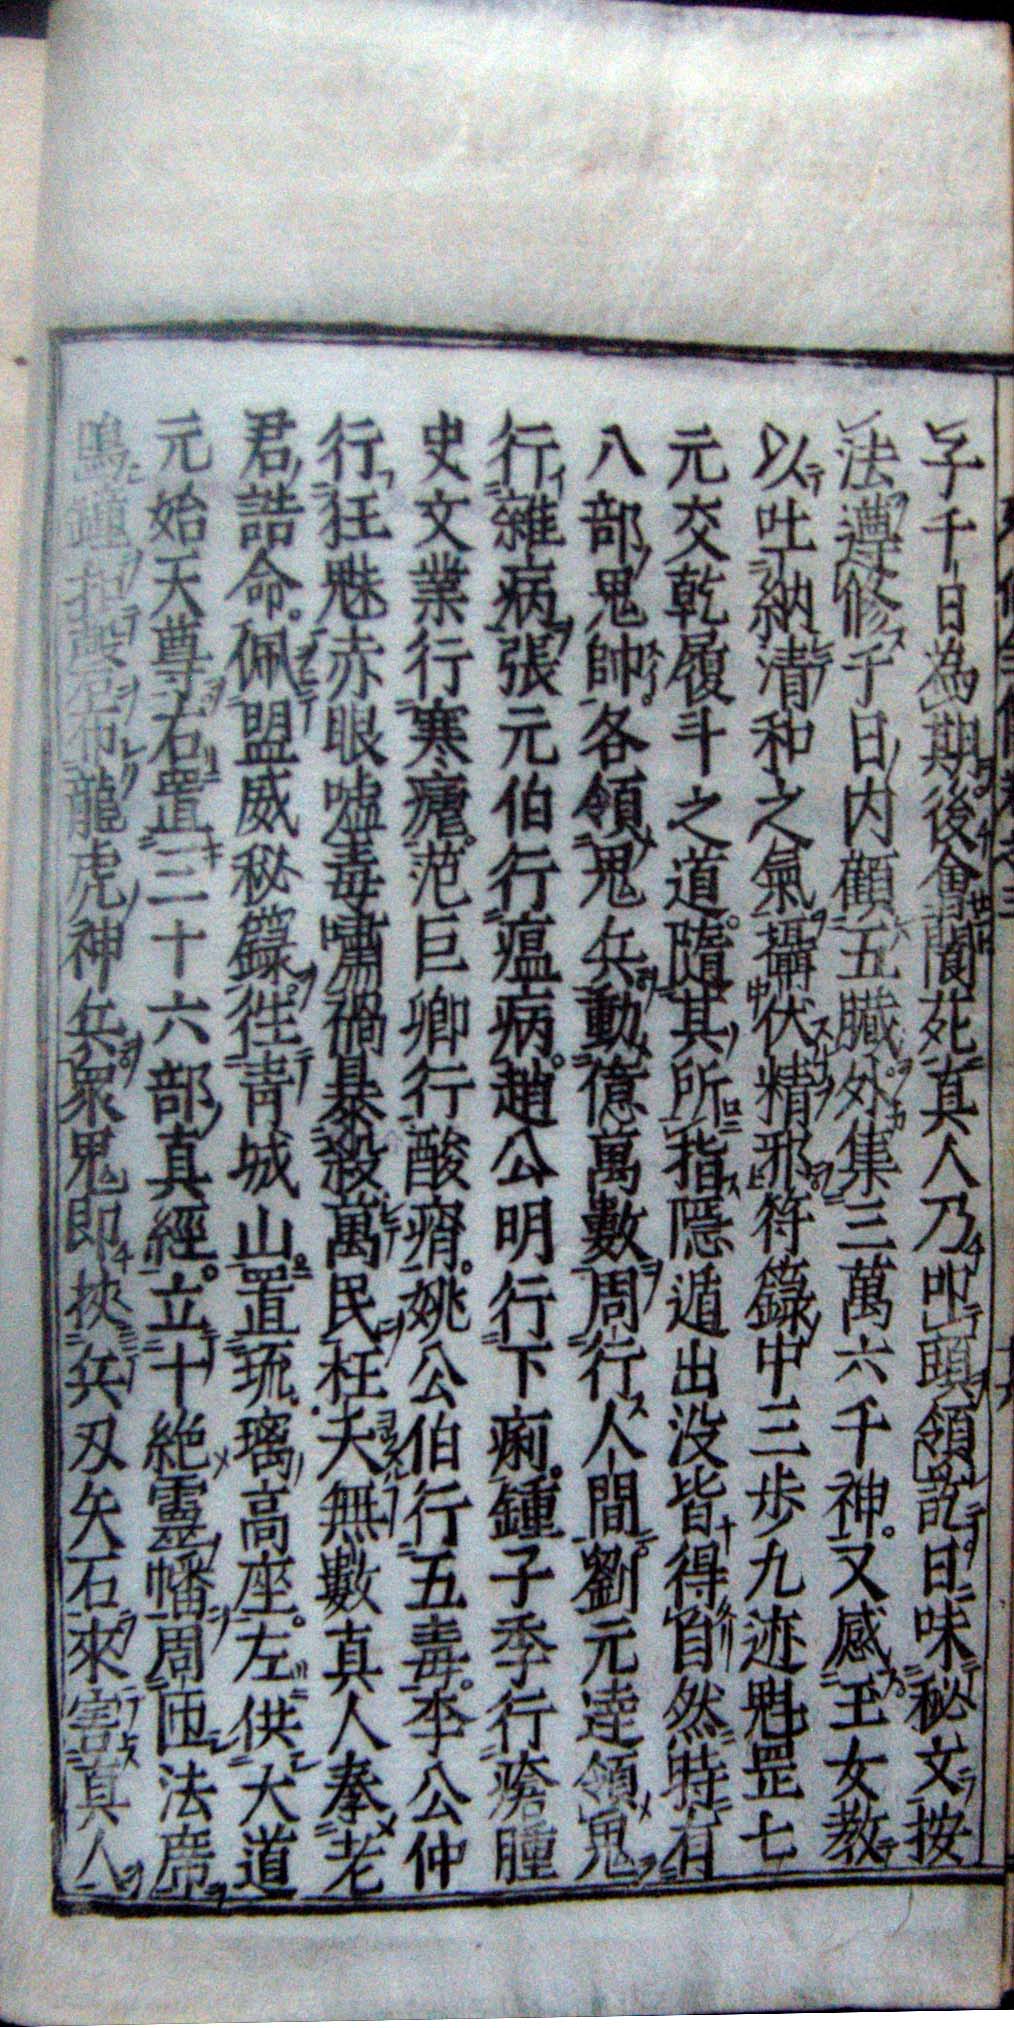 子千日為期後會閬苑真人乃叩頭領訖日味秘文按
法遵修千日內顧五臟外集三萬六千神又感玉女教
以吐納清和之氣攝伏精邪符籙中三步九迹魁罡七
元交乾履斗之道隨其所指隱遁出沒皆得自然時有
八部鬼帥各領鬼兵動億萬數周行人間劉元達領鬼
行雜病張元伯行瘟病趙公明行下痢鍾子季行瘡腫
史文業行寒瘧范巨卿行酸痟姚公伯行五毒李公仲
行狂魅赤眼噓毒嘯禍暴殺萬民枉夭無數真人奉老
君誥命佩盟威秘籙徃青城山置琉璃高座左供大道
元始天尊右置三十六部真經立十絶靈幡周匝法席
鳴鐘扣磬布龍虎神兵衆鬼即挾兵刃矢石來害真人